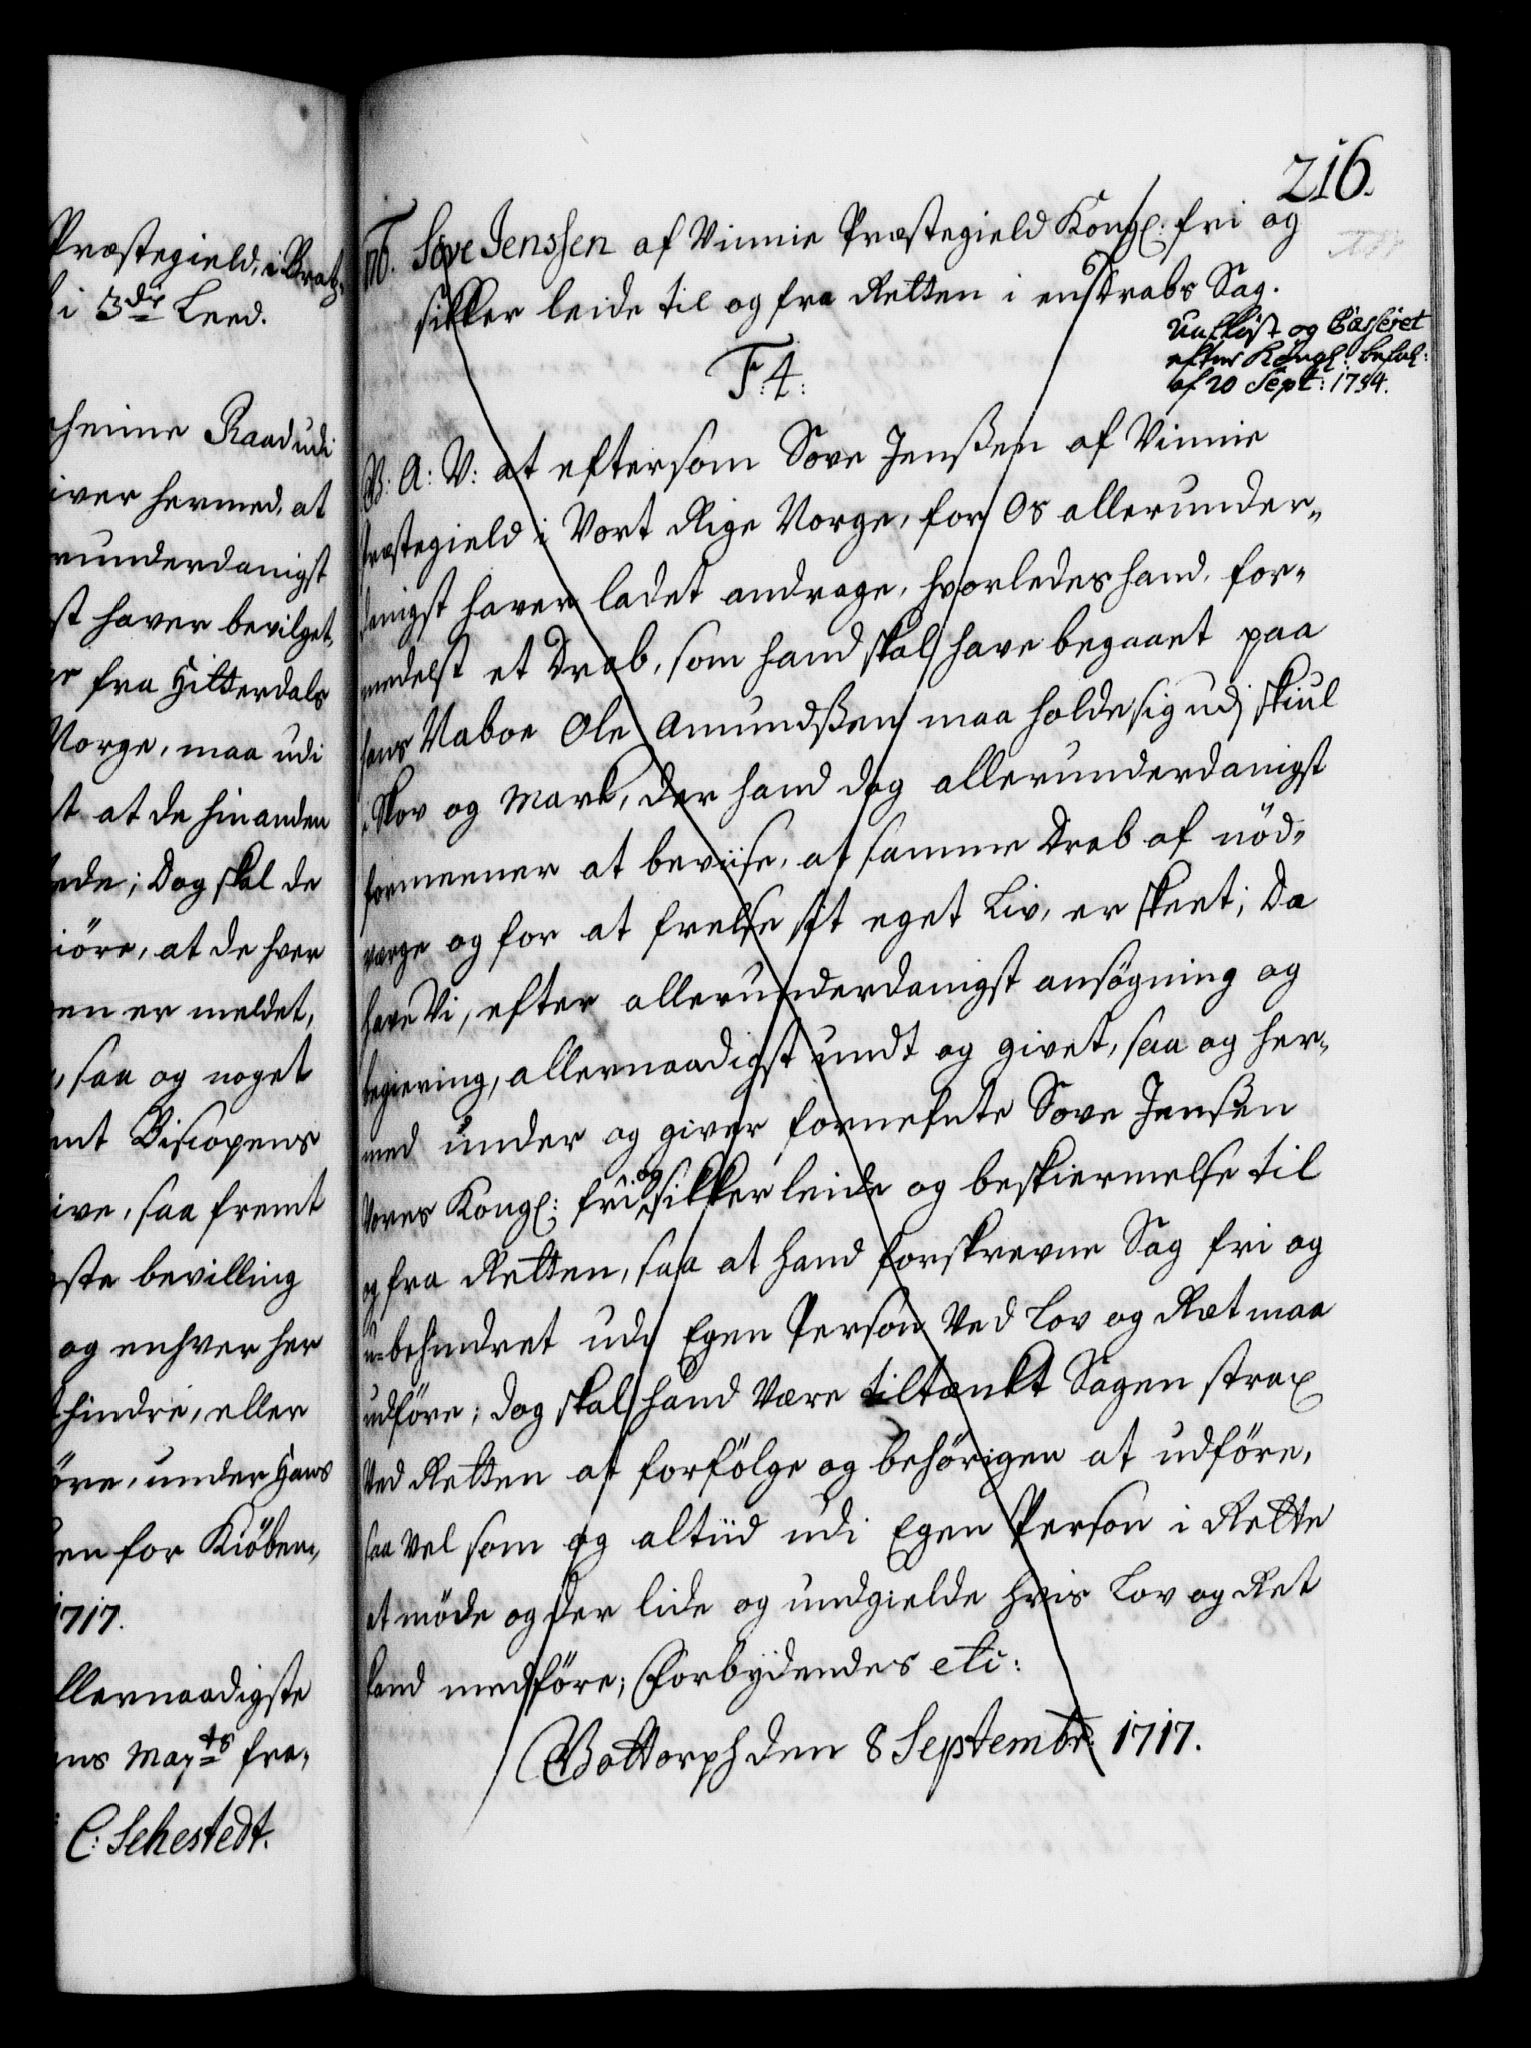 Præstegield, i Bratz-
i 3die Leed.
heime Raad udi
iver hermed, at
runderdanigst
st haver bevilget,
er fra Hitterdals
Norge, maa udi
st at de hinanden
ede; Dog skal de
giöre, at de hver
en er meldet,
, saa og noget
mt Biscopens
ive, saa fremt
gste bevilling
og enhver her
hindre, eller
öre, under Hans
en for Kiöben-
1717.
llernaadigste
ns Mayts fra-
C: Sehestedt.
216.
Nb. Söve Jenssen af Vinnie Præstegield Kongl: fri og
sikker leide til og fra Retten i en Drabs Sag.
F: 4:
Uulöst og Casseret
efter Kongl: befal:
af 20 Sept: 1734.
V: A: V: at eftersom Sove Jenßen af Vinnie
Præstegield i Vort Rige Norge, for Os allerunder-
danigst haver ladet andrage, hvorledes hand, for-
medelst et Drab, som hand skal have begaaet paa
hans Naboe Ole Amundßen maa holde sig udj skiul
i Skov og Mark, der hand dog allerunderdanigst
formeener at beviise, at samme Drab af nöd-
verge og for at frelse sit eget Liv, er skeet; Da
have Vi, efter allerunderdanigst ansögning og
begiering, allernaadigst undt og givet, saa og her-
med under og giver fornefnte Sove Jenßen
Vores Kongl: fri og sikker leide og beskiermelse til
og fra Retten, saa at hand forskrevne Sag fri og
u-behindret udj Egen Person Ved Lov og Ræt maa
udföre; Dog skal hand Være tiltænkt Sagen strax
Ved Retten at forfölge og behörigen at udföre,
saa Vel som og altiid udi Egen Person i Rette
at möde og der lide og undgielde hvis Lov og Ret
kand medföre; Forbydendes etc:
Gottorph den 8 Septembr: 1717.